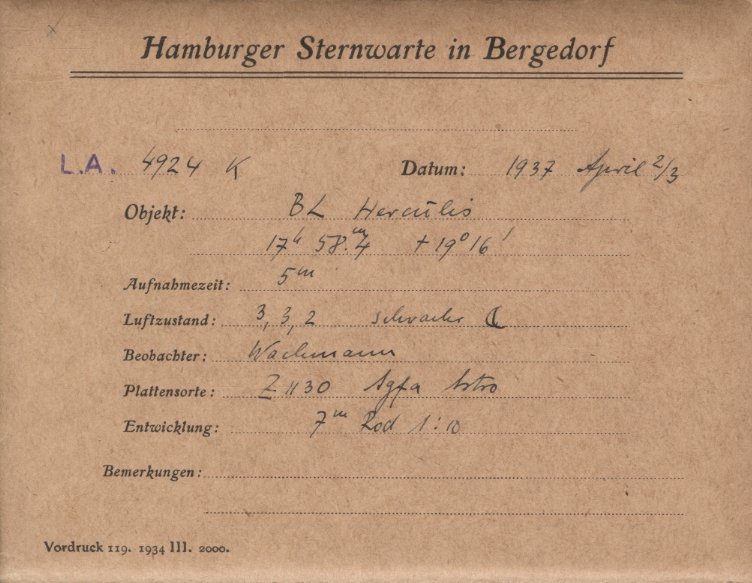 Hamburger Sternwarte in Bergedorf
L.A. 4924 K Datum: 1937 April 2/3
Objekt: BL Herculis
17h 58.m4 +19° 16'
Aufnahmezeit: 5m
Luftzustand: 3, 3, 2 schwacher ☾
Beobachter: Wachmann
Plattensorte: Z 1130 Agfa Astro
Entwicklung: 7m Rod 1:10
Bemerkungen:
Vordruck 119. 1934 III. 2000.